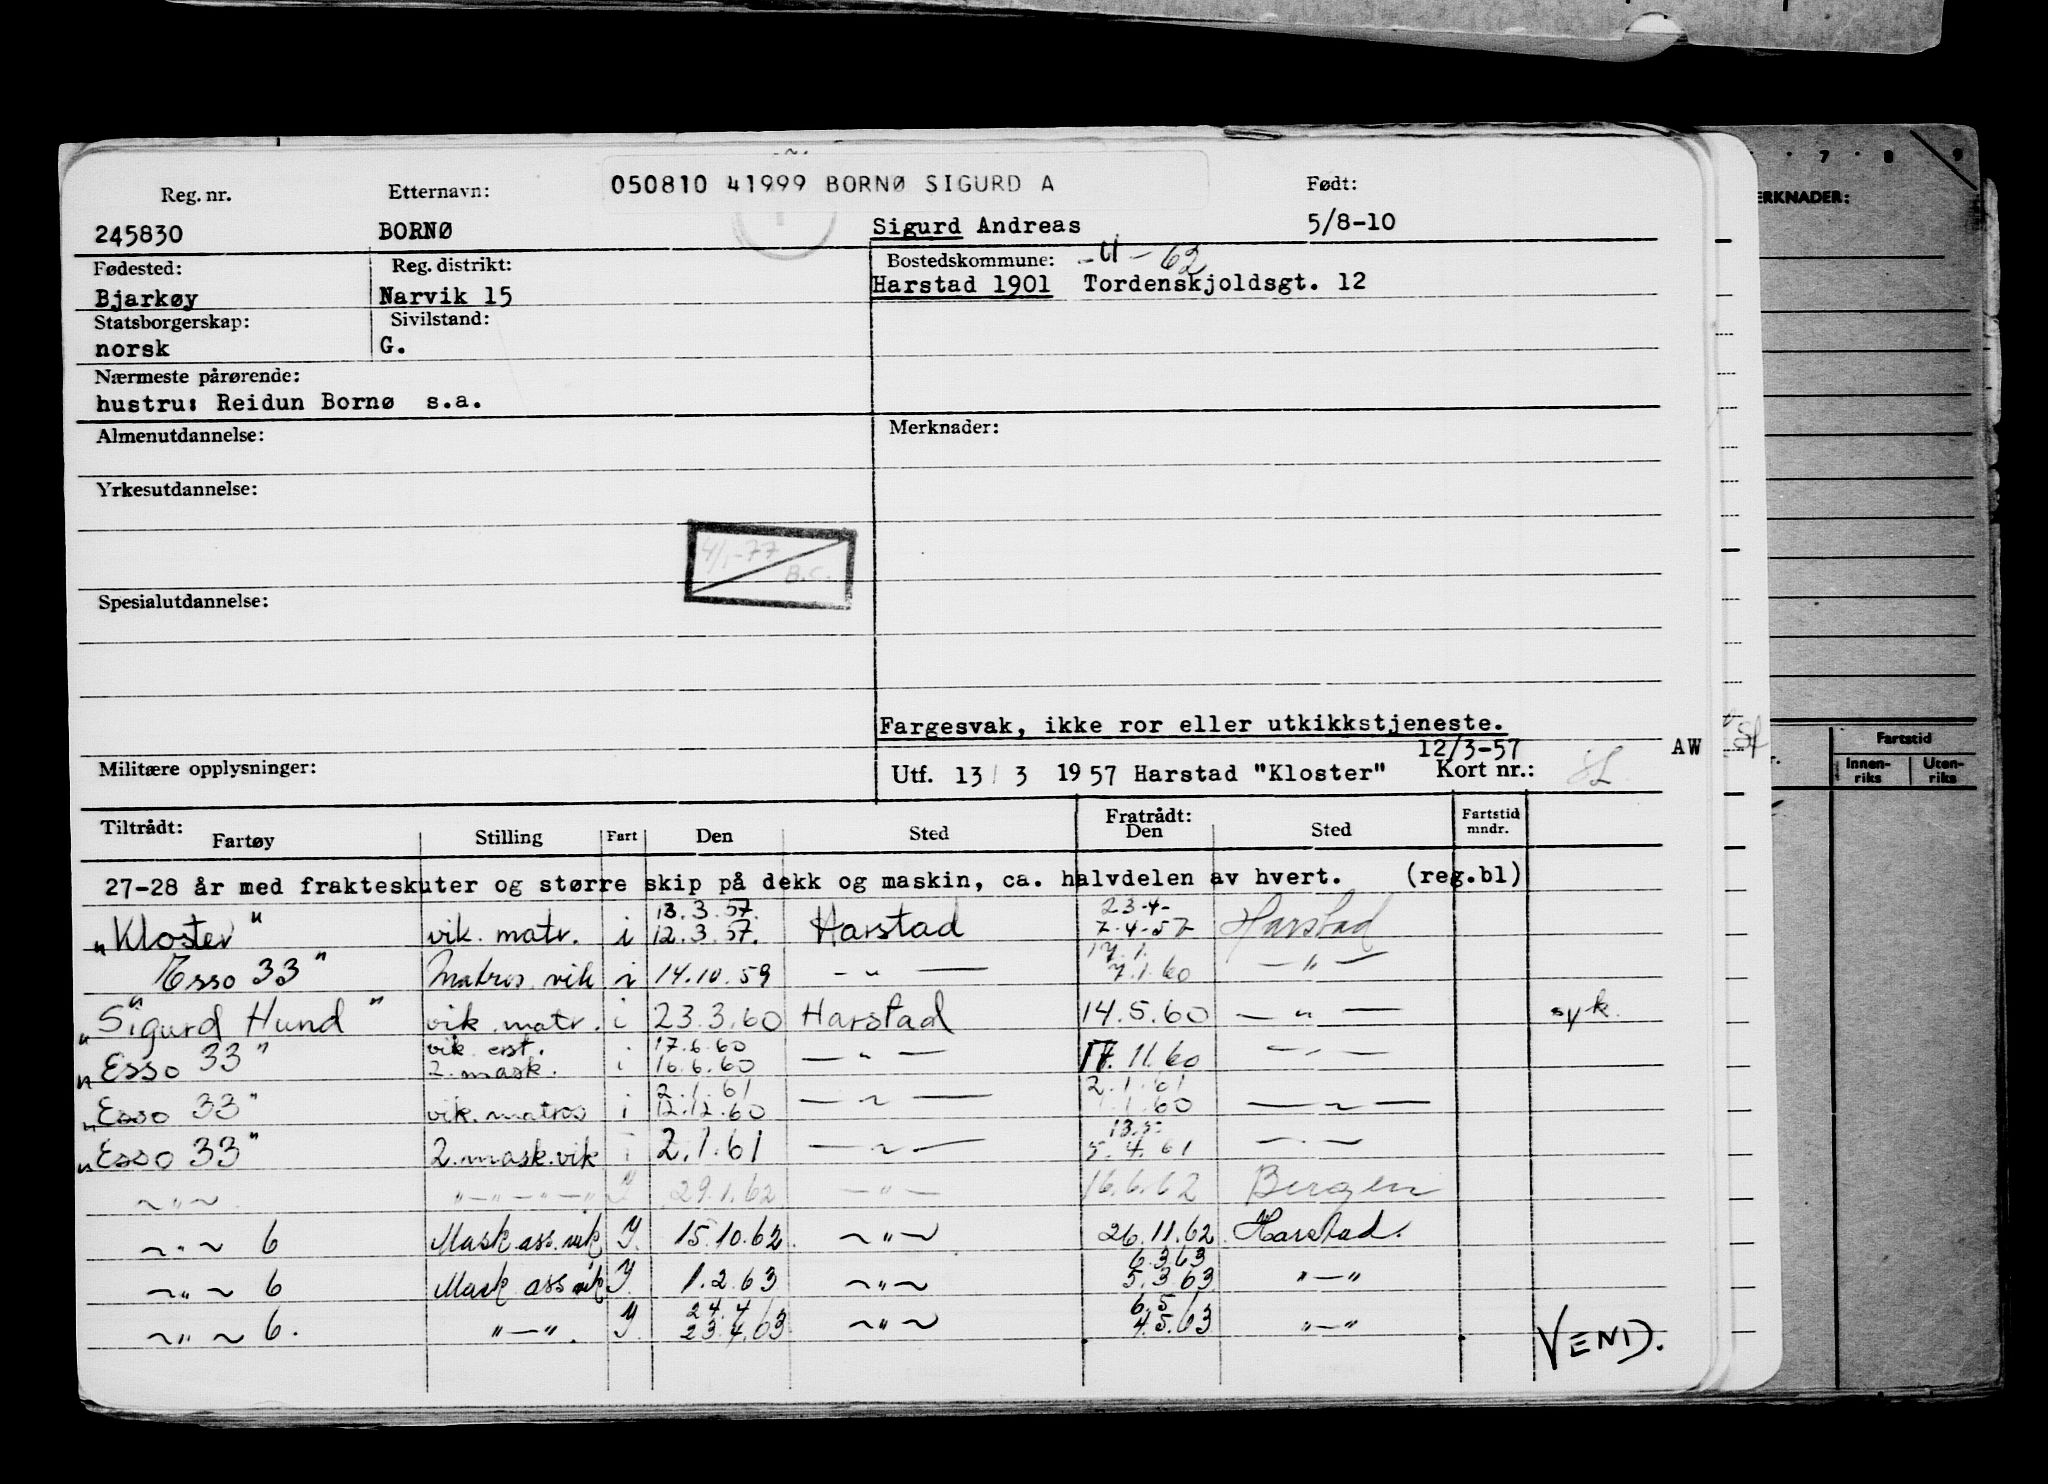 050810 41999 BORNØ SIGURD A
Reg. nr. Etternavn: Født:
245830 BORNØ Sigurd Andreas 5/8-10
Fødested: Reg. distrikt: Bostedskommune: -11-62
Bjarkøy Narvik 15 Harstad 1901 Tordenskjoldsgt. 12
Statsborgerskap: Sivilstand:
norsk G.
Nærmeste pårørende:
hustru: Reidun Bornø s.a.
Almenutdannelse: Merknader:
Yrkesutdannelse:
4/1-77
B.C.
Spesialutdannelse:
Fargesvak, ikke ror eller utkikkstjeneste.
12/3-57 AW
Militære opplysninger: Utf. 13/3 1957 Harstad "Kloster" Kort nr.:
Tiltrådt: Fratrådt:
Fartøy Stilling Fart Den Sted Den Sted Fartstid mndr.
27-28 år med frakteskuter og større skip på dekk og maskin, ca. halvdelen av hvert. (reg.bl)
13.3.57. 23.4-
"Kloster" vik. matr. i 12.3.57. Harstad 7.4.57 Harstad
17.1.
Esso 33" Matros vik i 14.10.59 -"- 7.1.60 -"-
"Sigurd Hund" vik. matr. i 23.3.60 Harstad 14.5.60 -"- syk.
vik. erst. 17.6.60
"Esso 33" 2. mask. i 16.6.60 -"- 17.11.60 -"-
2.1.61 2.1.61
"Esso 33" vik. matros i 12.12.60 -"- 1.1.60 -"-
13.5
"Esso 33" 2. mask. vik i 2.1.61 -"- 5.4.61 -"-
-"- "-"-"-" 29.1.62 -"- 16.6.62 Bergen
-"- 6 Mask. ass. vik y. 15.10.62. -"- 26.11.62 Harstad.
6.3.63
-"- 6 Mask ass vik y. 1.2.63 -"- 5.3.63 "-"
24.4 6.5
-"- 6. "-". y. 23.4.63 -"- 4.5.63 "-"
VEND.
7 8 9
MERKNADER:
Fartstid
Innenriks Utenriks